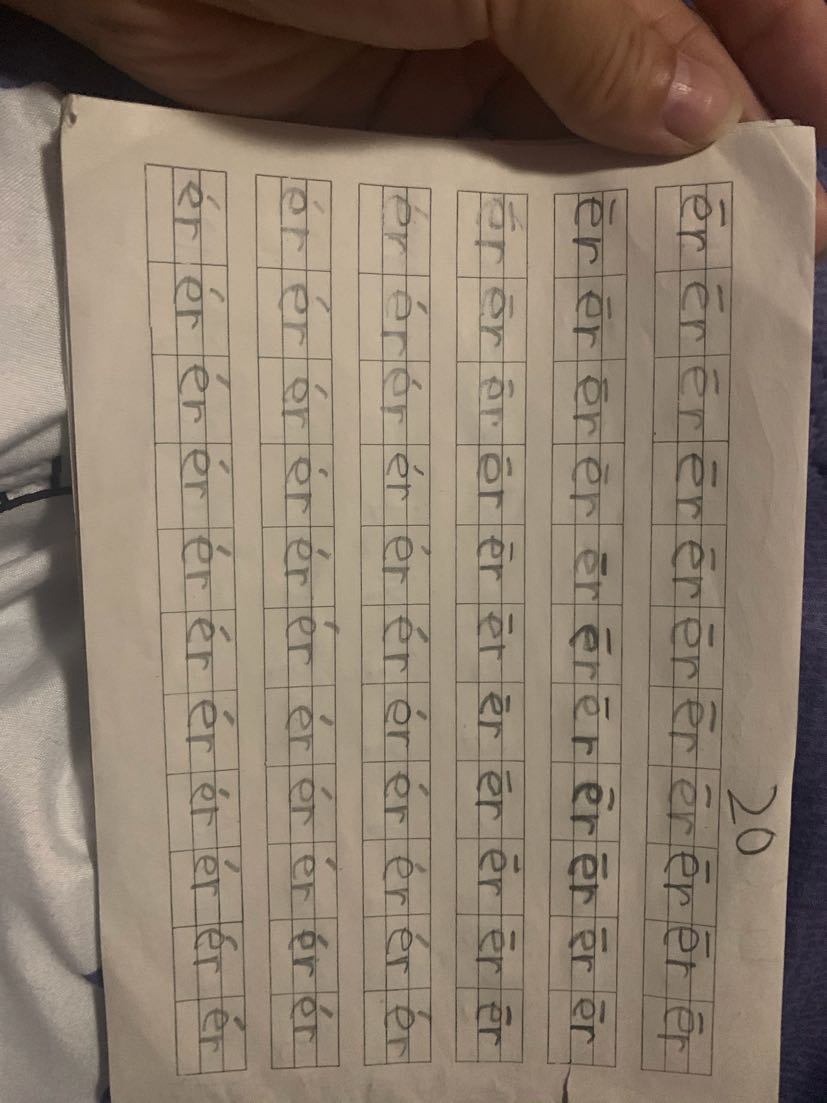 20
ēr ēr ēr ēr ēr ēr ēr ēr ēr ēr ēr
ēr ēr ēr ēr ēr ēr ēr ēr ēr ēr ēr
ēr ēr ēr ēr ēr ēr ēr ēr ēr ēr ēr
ér ér ér ér ér ér ér ér ér ér ér
ér ér ér ér ér ér ér ér ér ér ér
ér ér ér ér ér ér ér ér ér ér ér